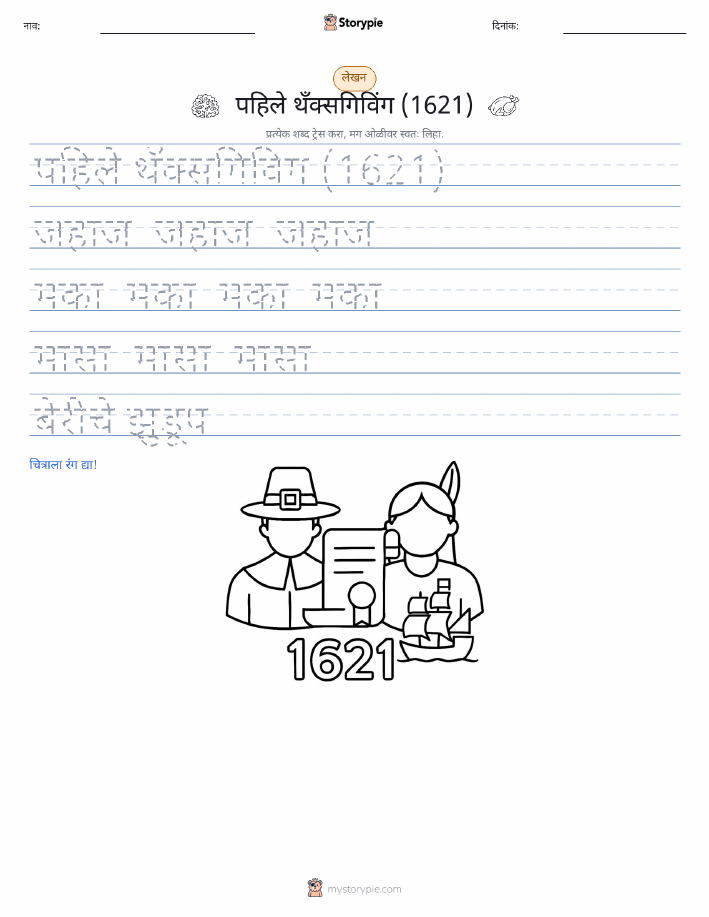 नाव:
Storypie
दिनांक:
लेखन
पहिले थँक्सगिविंग (1621)
प्रत्येक शब्द ट्रेस करा, मग ओळीवर स्वतः लिहा.
पहिले थँक्सगिविंग (1621)
जहाज जहाज जहाज
मका मका मका मका
मासा मासा मासा
बेरीचे झुडूप
चित्राला रंग द्या!
1621
mystorypie.com